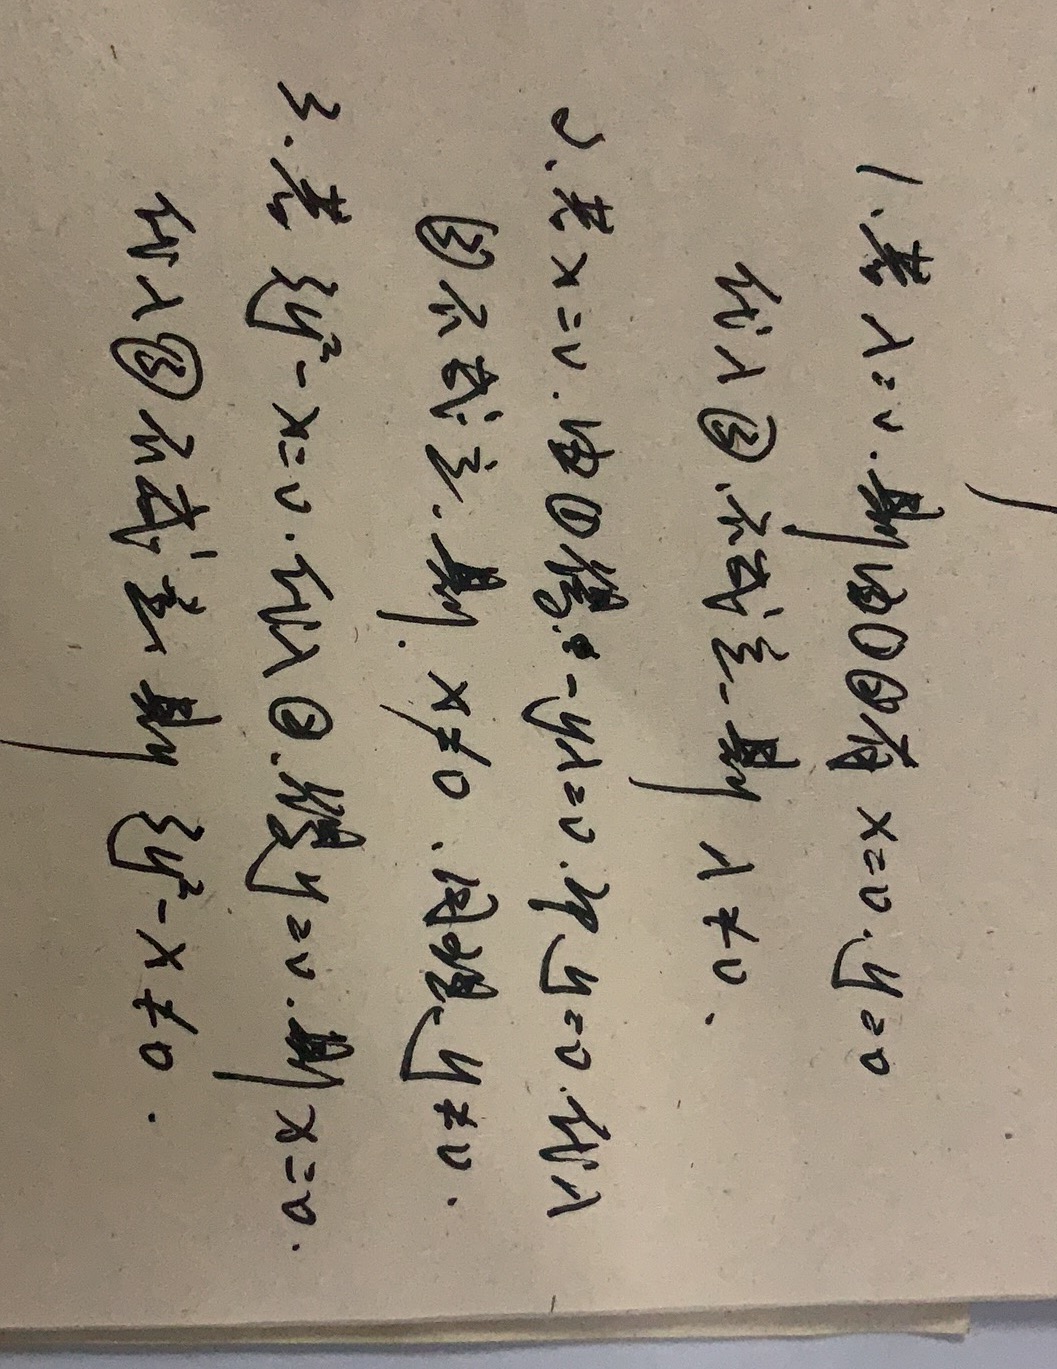 1. 若 λ=0. 则由①②有 x=0. y=0
代入③. 不成立. 则 λ≠0.
2. 若 x=0. 由①得. -yλ=0. 即 y=0. 代入
③不成立. 则. x≠0. 同理. y≠0.
3. 若 ξy²-x=0. 代入②. 得 y=0. 则 x=0.
代入③不成立. 则 ξy²-x≠0.